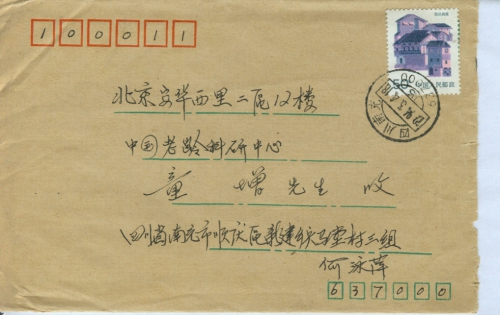 100011
50 中国人民邮政
四川南充
北京安华西里二区12楼
中国老龄科研中心
童增先生收
四川省南充市顺庆区新建乡马村三组
何泳萍
637000